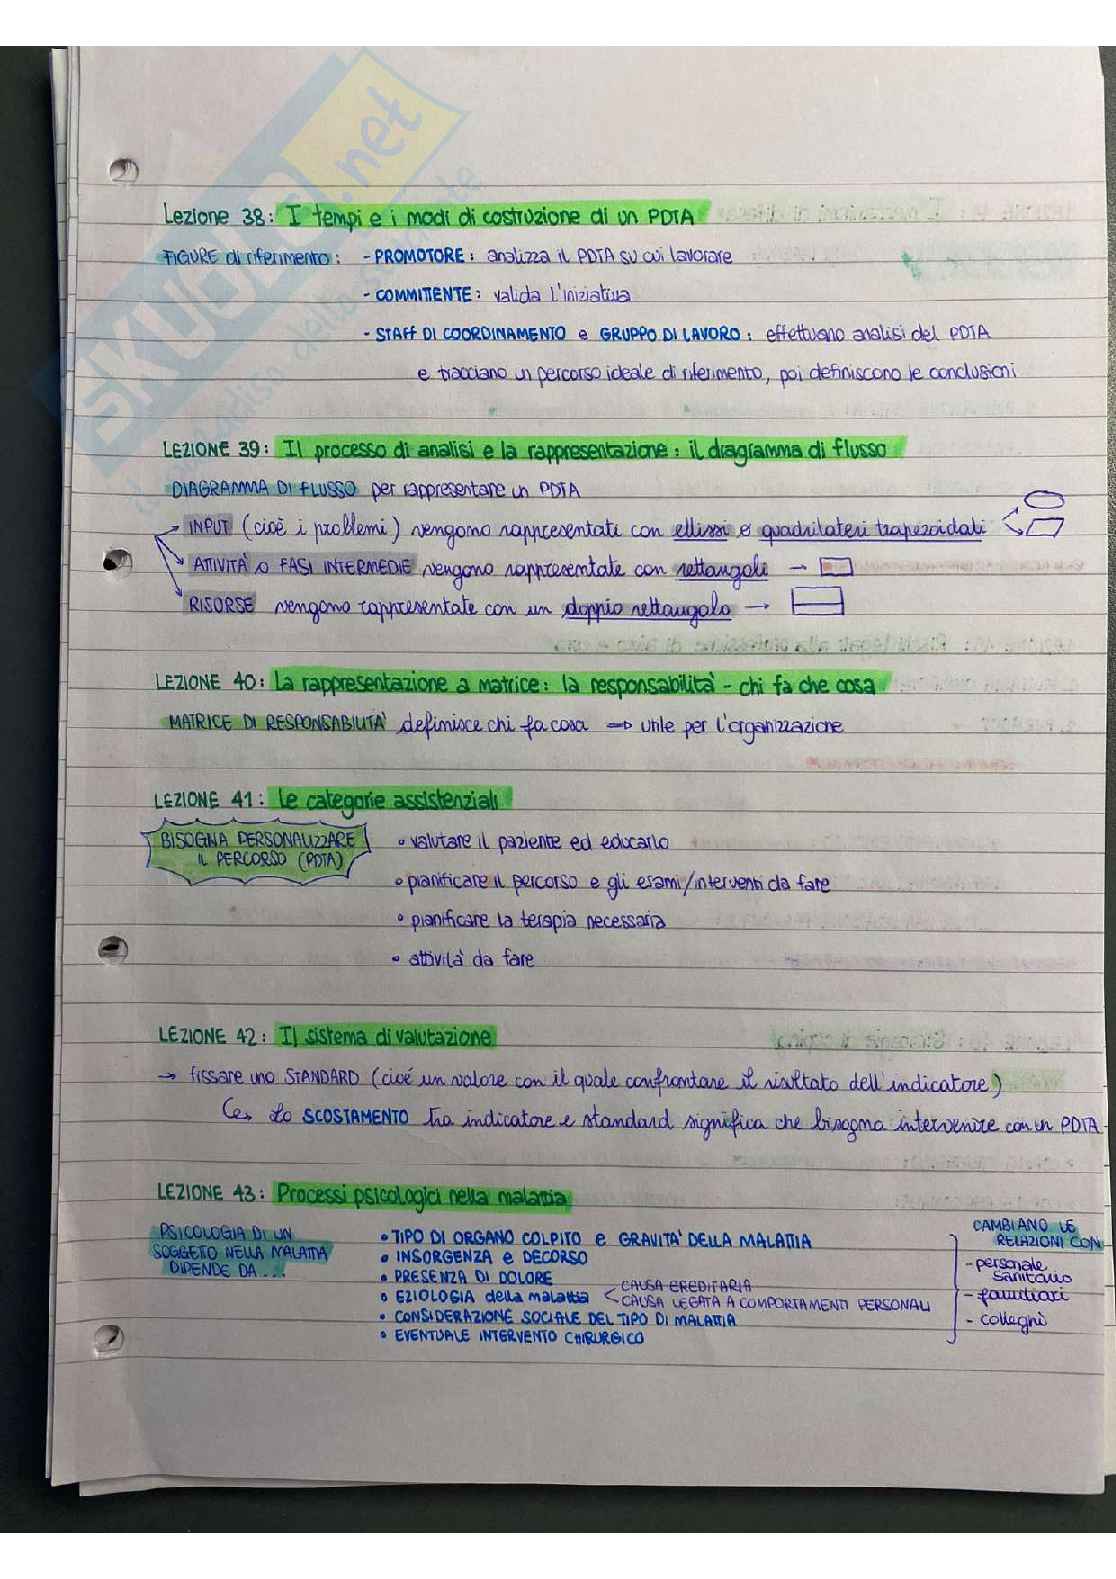 SKUOLA.net
Lezione 38: I tempi e i modi di costruzione di un PDTA
FIGURE di riferimento: - PROMOTORE: analizza il PDTA su cui lavorare
- COMMITTENTE: valida l'iniziativa
- STAFF DI COORDINAMENTO e GRUPPO DI LAVORO: effettuano analisi del PDTA
e tracciano un percorso ideale di riferimento, poi definiscono le conclusioni
LEZIONE 39: Il processo di analisi e la rappresentazione: il diagramma di flusso
DIAGRAMMA DI FLUSSO per rappresentare un PDTA
→ INPUT (cioè i problemi) vengono rappresentati con ellissi e quadrilateri trapezoidali
→ ATIVITÀ o FASI INTERMEDIE vengono rappresentate con rettangoli →
→ RISORSE vengono rappresentate con un doppio rettangolo →
LEZIONE 40: La rappresentazione a matrice: la responsabilità - chi fa che cosa
MATRICE DI RESPONSABILITÀ definisce chi fa cosa ⇒ utile per l'organizzazione
LEZIONE 41: Le categorie assistenziali
BISOGNA PERSONALIZZARE
IL PERCORSO (PDTA)
• valutare il paziente ed educarlo
• pianificare il percorso e gli esami/interventi da fare
• pianificare la terapia necessaria
• attività da fare
LEZIONE 42: Il sistema di valutazione
→ fissare uno STANDARD (cioè un valore con il quale confrontare il risultato dell'indicatore)
↳ Lo SCOSTAMENTO tra indicatore e standard significa che bisogna intervenire con un PDTA
LEZIONE 43: Processi psicologici nella malattia
PSICOLOGIA DI UN
SOGGETO NELLA MALATTIA
DIPENDE DA...
• TIPO DI ORGANO COLPITO e GRAVITÀ DELLA MALATTIA
• INSORGENZA e DECORSO
• PRESENZA DI DOLORE
• EZIOLOGIA della malattia < CAUSA EREDITARIA
CAUSA LEGATA A COMPORTAMENTI PERSONALI
• CONSIDERAZIONE SOCIALE DEL TIPO DI MALATTIA
• EVENTUALE INTERVENTO CHIRURGICO
CAMBIANO LE
RELAZIONI CON
- personale
sanitario
- familiari
- colleghi